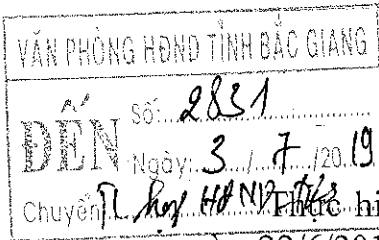 VĂN PHÒNG HĐND TỈNH BẮC GIANG
ĐẾN
Số: 2831
Ngày: 3 / 7 /20 19
Chuyển: TL họp HĐND Thực hi